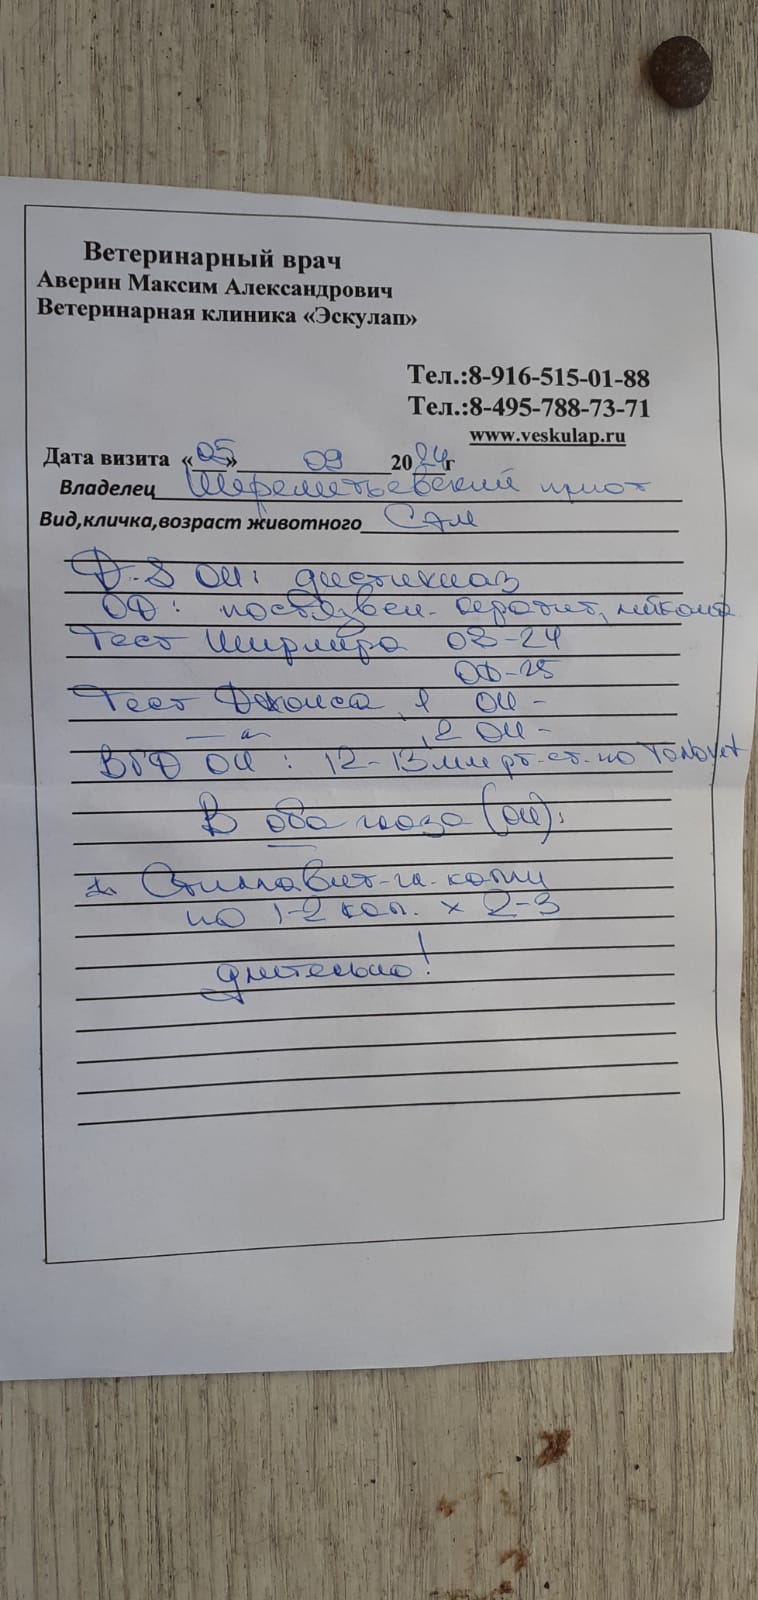 Ветеринарный врач
Аверин Максим Александрович
Ветеринарная клиника «Эскулап»
Тел.:8-916-515-01-88
Тел.:8-495-788-73-71
www.veskulap.ru
Дата визита «05» 09 2024г
Владелец Шереметьевский приют
Вид,кличка,возраст животного Сэм
Д-S ОИ: дистихиаз
ОД: постязвен. кератит, лейкома
Тест Ширмера OS-24
OD-25
Тест Джонса 1 ОИ -
— " — , 2 ОИ -
ВГД ОИ : 12-13 мм рт. ст. по Tonovet
В оба глаза (ОИ):
1. Стиллавит-гл. капли
по 1-2 кап. x 2-3
длительно!